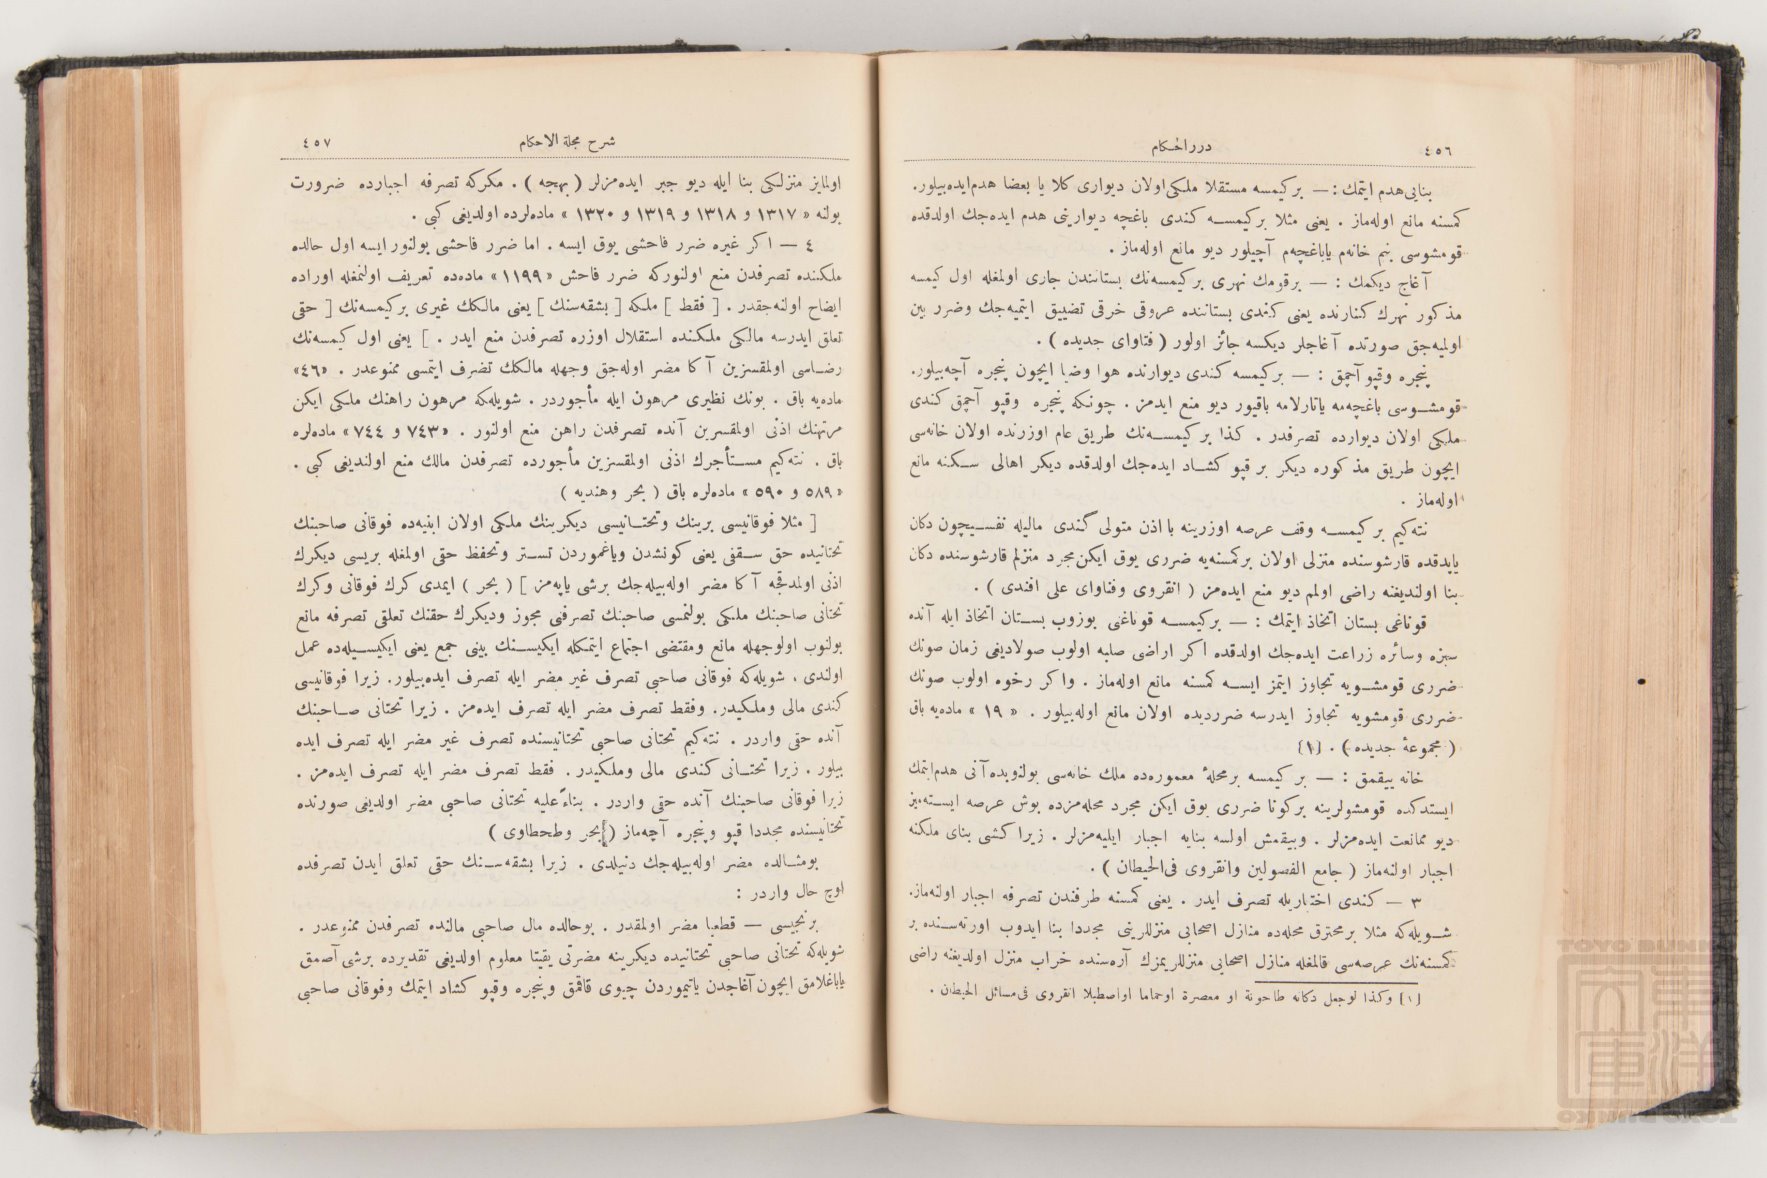 ٤٥٦
دررالحكام
بنايى هدم ايتمك : — بركيمسه مستقلا ملكى اولان ديوارى كلا يا بعضا هدم ايده‌بيلور.
كمسنه مانع اوله‌ماز . يعنى مثلا بركيمسه كندى باغچه ديوارينى هدم ايده‌جك اولدقده
قومشوسى بنم خانه‌م ياباغچه‌م آچيلور ديو مانع اوله‌ماز .
آغاج ديكمك : — برقومك نهرى بركيمسه‌نك بستانندن جارى اولمغله اول كيمسه
مذكور نهرك كنارنده يعنى كندى بستاننده عروقى خرقى تضييق ايتميه‌جك وضرر بين
اولميه‌جق صورتده آغاجلر ديكسه جائز اولور ( فتاواى جديده ) .
پنجره وقپو آچمق : — بركيمسه كندى ديوارنده هوا وضيا ايچون پنجره آچه‌بيلور.
قومشوسى باغچه‌مه ياتارلامه باقيور ديو منع ايدمز . چونكه پنجره وقپو آچمق كندى
ملكى اولان ديوارده تصرفدر . كذا بركيمسه‌نك طريق عام اوزرنده اولان خانه‌سى
ايچون طريق مذكوره ديكر بر قپو كشاد ايده‌جك اولدقده ديكر اهالى سكنه مانع
اوله‌ماز .
نته‌كيم بركيمسه وقف عرصه اوزرينه با اذن متولى كندى ماليله نفسيچون دكان
ياپدقده قارشوسنده منزلى اولان بركمسنه‌يه ضررى يوق ايكن مجرد منزلم قارشوسنده دكان
بنا اولنديغنه راضى اولم ديو منع ايده‌مز ( انقروى وفتاواى على افندى ) .
قوناغى بستان اتخاذ ايتمك : — بركيمسه قوناغى بوزوب بستان اتخاذ ايله آنده
سبزه وسائره زراعت ايده‌جك اولدقده اكر اراضى صلبه اولوب صولاديغى زمان صونك
ضررى قومشويه تجاوز ايتمز ايسه كمسنه مانع اوله‌ماز . واكر رخوه اولوب صونك
ضررى قومشويه تجاوز ايدرسه ضررديده اولان مانع اوله‌بيلور . « ١٩ » ماده‌يه باق
( مجموعۀ جديده ) . [١]
خانه ييقمق : — بركيمسه برمحلۀ معموره‌ده ملك خانه‌سى بولنوبده آنى هدم ايتمك
ايستدكده قومشولرينه بركونا ضررى يوق ايكن مجرد محله‌مزده بوش عرصه ايسته‌يز
ديو ممانعت ايده‌مزلر . وييقمش اولسه بنايه اجبار ايليه‌مزلر . زيرا كشى بناى ملكنه
اجبار اولنه‌ماز ( جامع الفصولين وانقروى فى‌الحيطان ) .
٣ — كندى اختياريله تصرف ايدر . يعنى كمسنه طرفندن تصرفه اجبار اولنه‌ماز.
شويله‌كه مثلا برمحترق محله‌ده منازل اصحابى منزللرينى مجددا بنا ايدوب اورته‌سنده بر
كمسنه‌نك عرصه‌سى قالمغله منازل اصحابى منزللريمزك آره‌سنده خراب منزل اولديغنه راضى
[١] وكذا لوجعل دكانه طاحونة او معصرة اوحماما اواصطبلا انقروى فى مسائل الحيطان .
شرح مجلة الاحكام
٤٥٧
اولمايز منزلكى بنا ايله ديو جبر ايده‌مزلر ( بهجه ) . مكركه تصرفه اجبارده ضرورت
بولنه « ١٣١٧ و ١٣١٨ و ١٣١٩ و ١٣٢٠ » ماده‌لرده اولديغى كبى .
٤ — اكر غيره ضرر فاحشى يوق ايسه . اما ضرر فاحشى بولنور ايسه اول حالده
ملكنده تصرفدن منع اولنوركه ضرر فاحش « ١١٩٩ » ماده‌ده تعريف اولنمغله اوراده
ايضاح اولنه‌جقدر . [ فقط ] ملكه [ بشقه‌سنك ] يعنى مالكك غيرى بركيمسه‌نك [ حقى
تعلق ايدرسه مالكى ملكنده استقلال اوزره تصرفدن منع ايدر . ] يعنى اول كيمسه‌نك
رضاسى اولمقسزين آكا مضر اوله‌جق وجهله مالكك تصرف ايتمسى ممنوعدر . «٤٦»
ماده‌يه باق . بونك نظيرى مرهون ايله مأجوردر . شويله‌كه مرهون راهنك ملكى ايكن
مرتهنك اذنى اولمقسزين آنده تصرفدن راهن منع اولنور . «٧٤٣ و ٧٤٤» ماده‌لره
باق . نته‌كيم مستأجرك اذنى اولمقسزين مأجورده تصرفدن مالك منع اولنديغى كبى .
« ٥٨٩ و ٥٩٠ » ماده‌لره باق ( بحر وهنديه )
[ مثلا فوقانيسى برينك وتحتانيسى ديكربنك ملكى اولان ابنيه‌ده فوقانى صاحبنك
تحتانيده حق سقفى يعنى كونشدن وياغموردن تستر وتحفظ حقى اولمغله بريسى ديكرك
اذنى اولمدقجه آكا مضر اوله‌بيله‌جك برشى ياپه‌مز ] ( بحر ) ايمدى كرك فوقانى وكرك
تحتانى صاحبنك ملكى بولنمسى صاحبنك تصرفنى مجوز وديكرك حقنك تعلقى تصرفه مانع
بولنوب اولوجهله مانع ومقتضى اجتماع ايتمكله ايكيسنك بينى جمع يعنى ايكيسيله‌ده عمل
اولندى ، شويله‌كه فوقانى صاحبى تصرف غير مضر ايله تصرف ايده‌بيلور. زيرا فوقانيسى
كندى مالى وملكيدر. وفقط تصرف مضر ايله تصرف ايده‌مز . زيرا تحتانى صاحبنك
آنده حقى واردر . نته‌كيم تحتانى صاحبى تحتانيسنده تصرف غير مضر ايله تصرف ايده
بيلور . زيرا تحتانى كندى مالى وملكيدر . فقط تصرف مضر ايله تصرف ايده‌مز .
زيرا فوقانى صاحبنك آنده حقى واردر . بناءً عليه تحتانى صاحبى مضر اولديغى صورتده
تحتانيسنده مجددا قپو وپنجره آچه‌ماز ( بحر وطحطاوى )
بومثالده مضر اوله‌بيله‌جك دنيلدى . زيرا بشقه‌سنك حقى تعلق ايدن تصرفده
اوچ حال واردر :
برنجيسى — قطعيا مضر اولمقدر . بوحالده مال صاحبى مالنده تصرفدن ممنوعدر .
شويله‌كه تحتانى صاحبى تحتانيده ديكرينه مضرتى يقينا معلوم اولديغى تقديرده برشى آصمق
ياباغلامق ايچون آغاجدن ياتيموردن چيوى قاقمق وپنجره وقپو كشاد ايتمك وفوقانى صاحبى
TOYO BUNKO